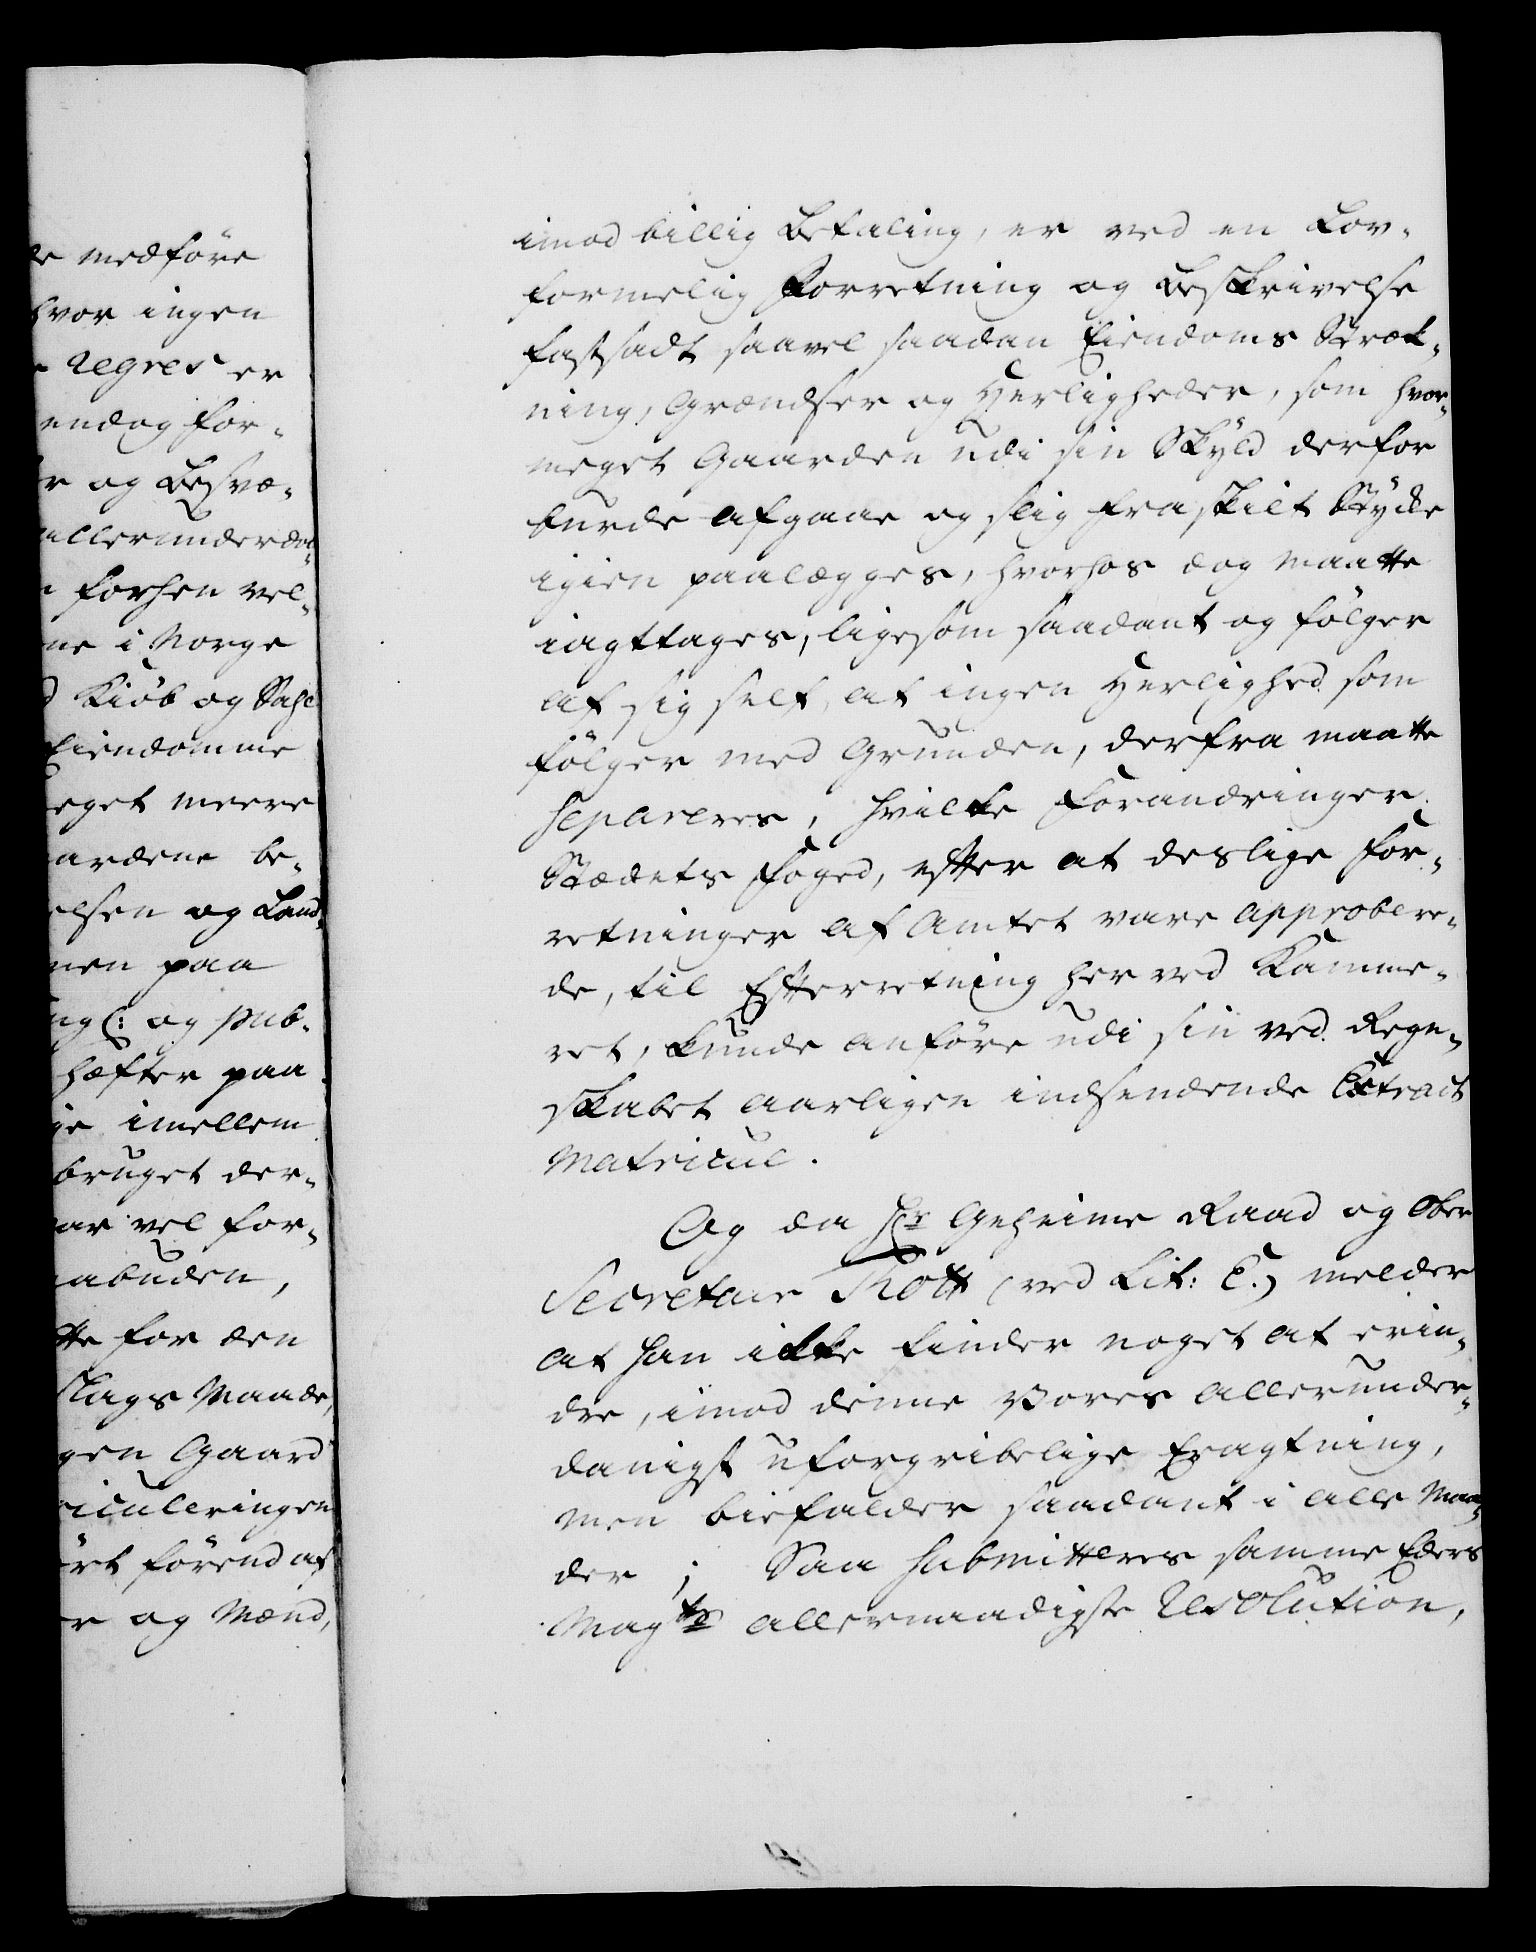 de medföre
hvor ingen
regres er
endog for-
r og Besvæ-
allerunderda-
forhen vel-
ne i Norge
d Kiöb og Sahl
Eiendomme
eget meere
ardene be-
elsen og Land-
men paa
ng (: og pub-
hæfter paa
ge imellem
bruget der-
ar vel for-
abuden,
tte for den
slags Maade,
gen Gaard
riculeringen
ört förend af
r og Mænd,
imod billig Betaling, er ved en Lov-
formelig Forretning og Beskrivelse
fastsadt saavel saadan Eiendoms Stræk-
ning, Grændser og Herligheder, som hvor-
meget Gaarden udi sin Skyld derfor
burde afgaae og slig fraskilt Stykke
igien paalægges, hvorhos dog maatte
iagttages, ligesom saadant og fölger
af sig self, at ingen Herlighed som
fölger med Grunden, derfra maatte
separeres, hvilke Forandringer
Stædets Foged, efter at deslige For-
retninger af Amtet vare approbere-
de, til Efterretning her ved Kamme-
ret, kunde anföre udi sin ved Regn-
skabet aarligen indsendende Extract
Matricul.
Og da Hr Geheime Raad og Ober
Secretaire Thott (ved Lit: C.) melder
at han ikke finder noget at erin-
dre, imod denne Vores allerunder-
danigst uforgribelige Eragtning,
men biefalder saadant i alle Maa-
der; Saa submitteres samme Eders
Mayts allernaadigste Resolution,